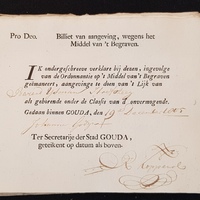 Pro Deo. Billiet van aangeving, wegens het
Middel van 't Begraven.
IK ondergeschreeve verklare bij dezen, ingevolge
van de Ordonnantie op 't Middel van 't Begraven
geëmaneert, aangevinge te doen van 't Lijk van
als gehorende onder de Classis van d' onvermogende.
Gedaan binnen GOUDA, den 19de
Ter Secretarije der Stad GOUDA,
geteekent op datum als boven.